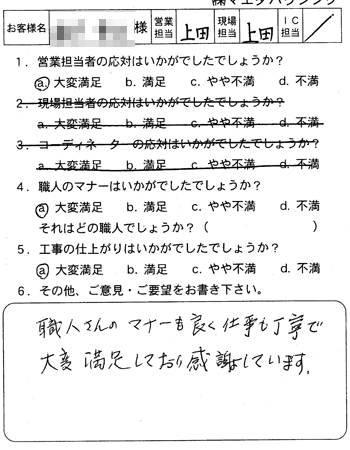 お客様名 様 営業担当 上田 現場担当 上田 IC担当 /
1. 営業担当者の応対はいかがでしたでしょうか?
a. 大変満足 b. 満足 c. やや不満 d. 不満
2. 現場担当者の応対はいかがでしたでしょうか?
a. 大変満足 b. 満足 c. やや不満 d. 不満
3. コーディネーターの応対はいかがでしたでしょうか?
a. 大変満足 b. 満足 c. やや不満 d. 不満
4. 職人のマナーはいかがでしたでしょうか?
a. 大変満足 b. 満足 c. やや不満 d. 不満
それはどの職人でしょうか?( )
5. 工事の仕上がりはいかがでしたでしょうか?
a. 大変満足 b. 満足 c. やや不満 d. 不満
6. その他、ご意見・ご要望をお書き下さい。
職人さんのマナーも良く仕事も丁寧で
大変満足しており感謝しています。